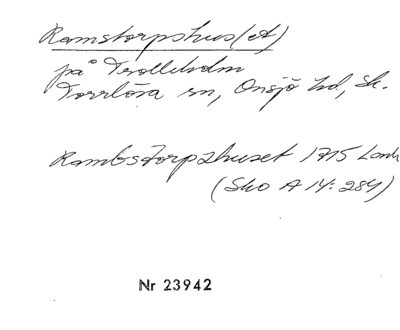 Ramstorpshus(et)
på Trolleholm
Torrlösa sn, Onsjö hd, Sk.
Rambstorpzhuset 1715 Landt
(Sko A 14: 284)
Nr 23942